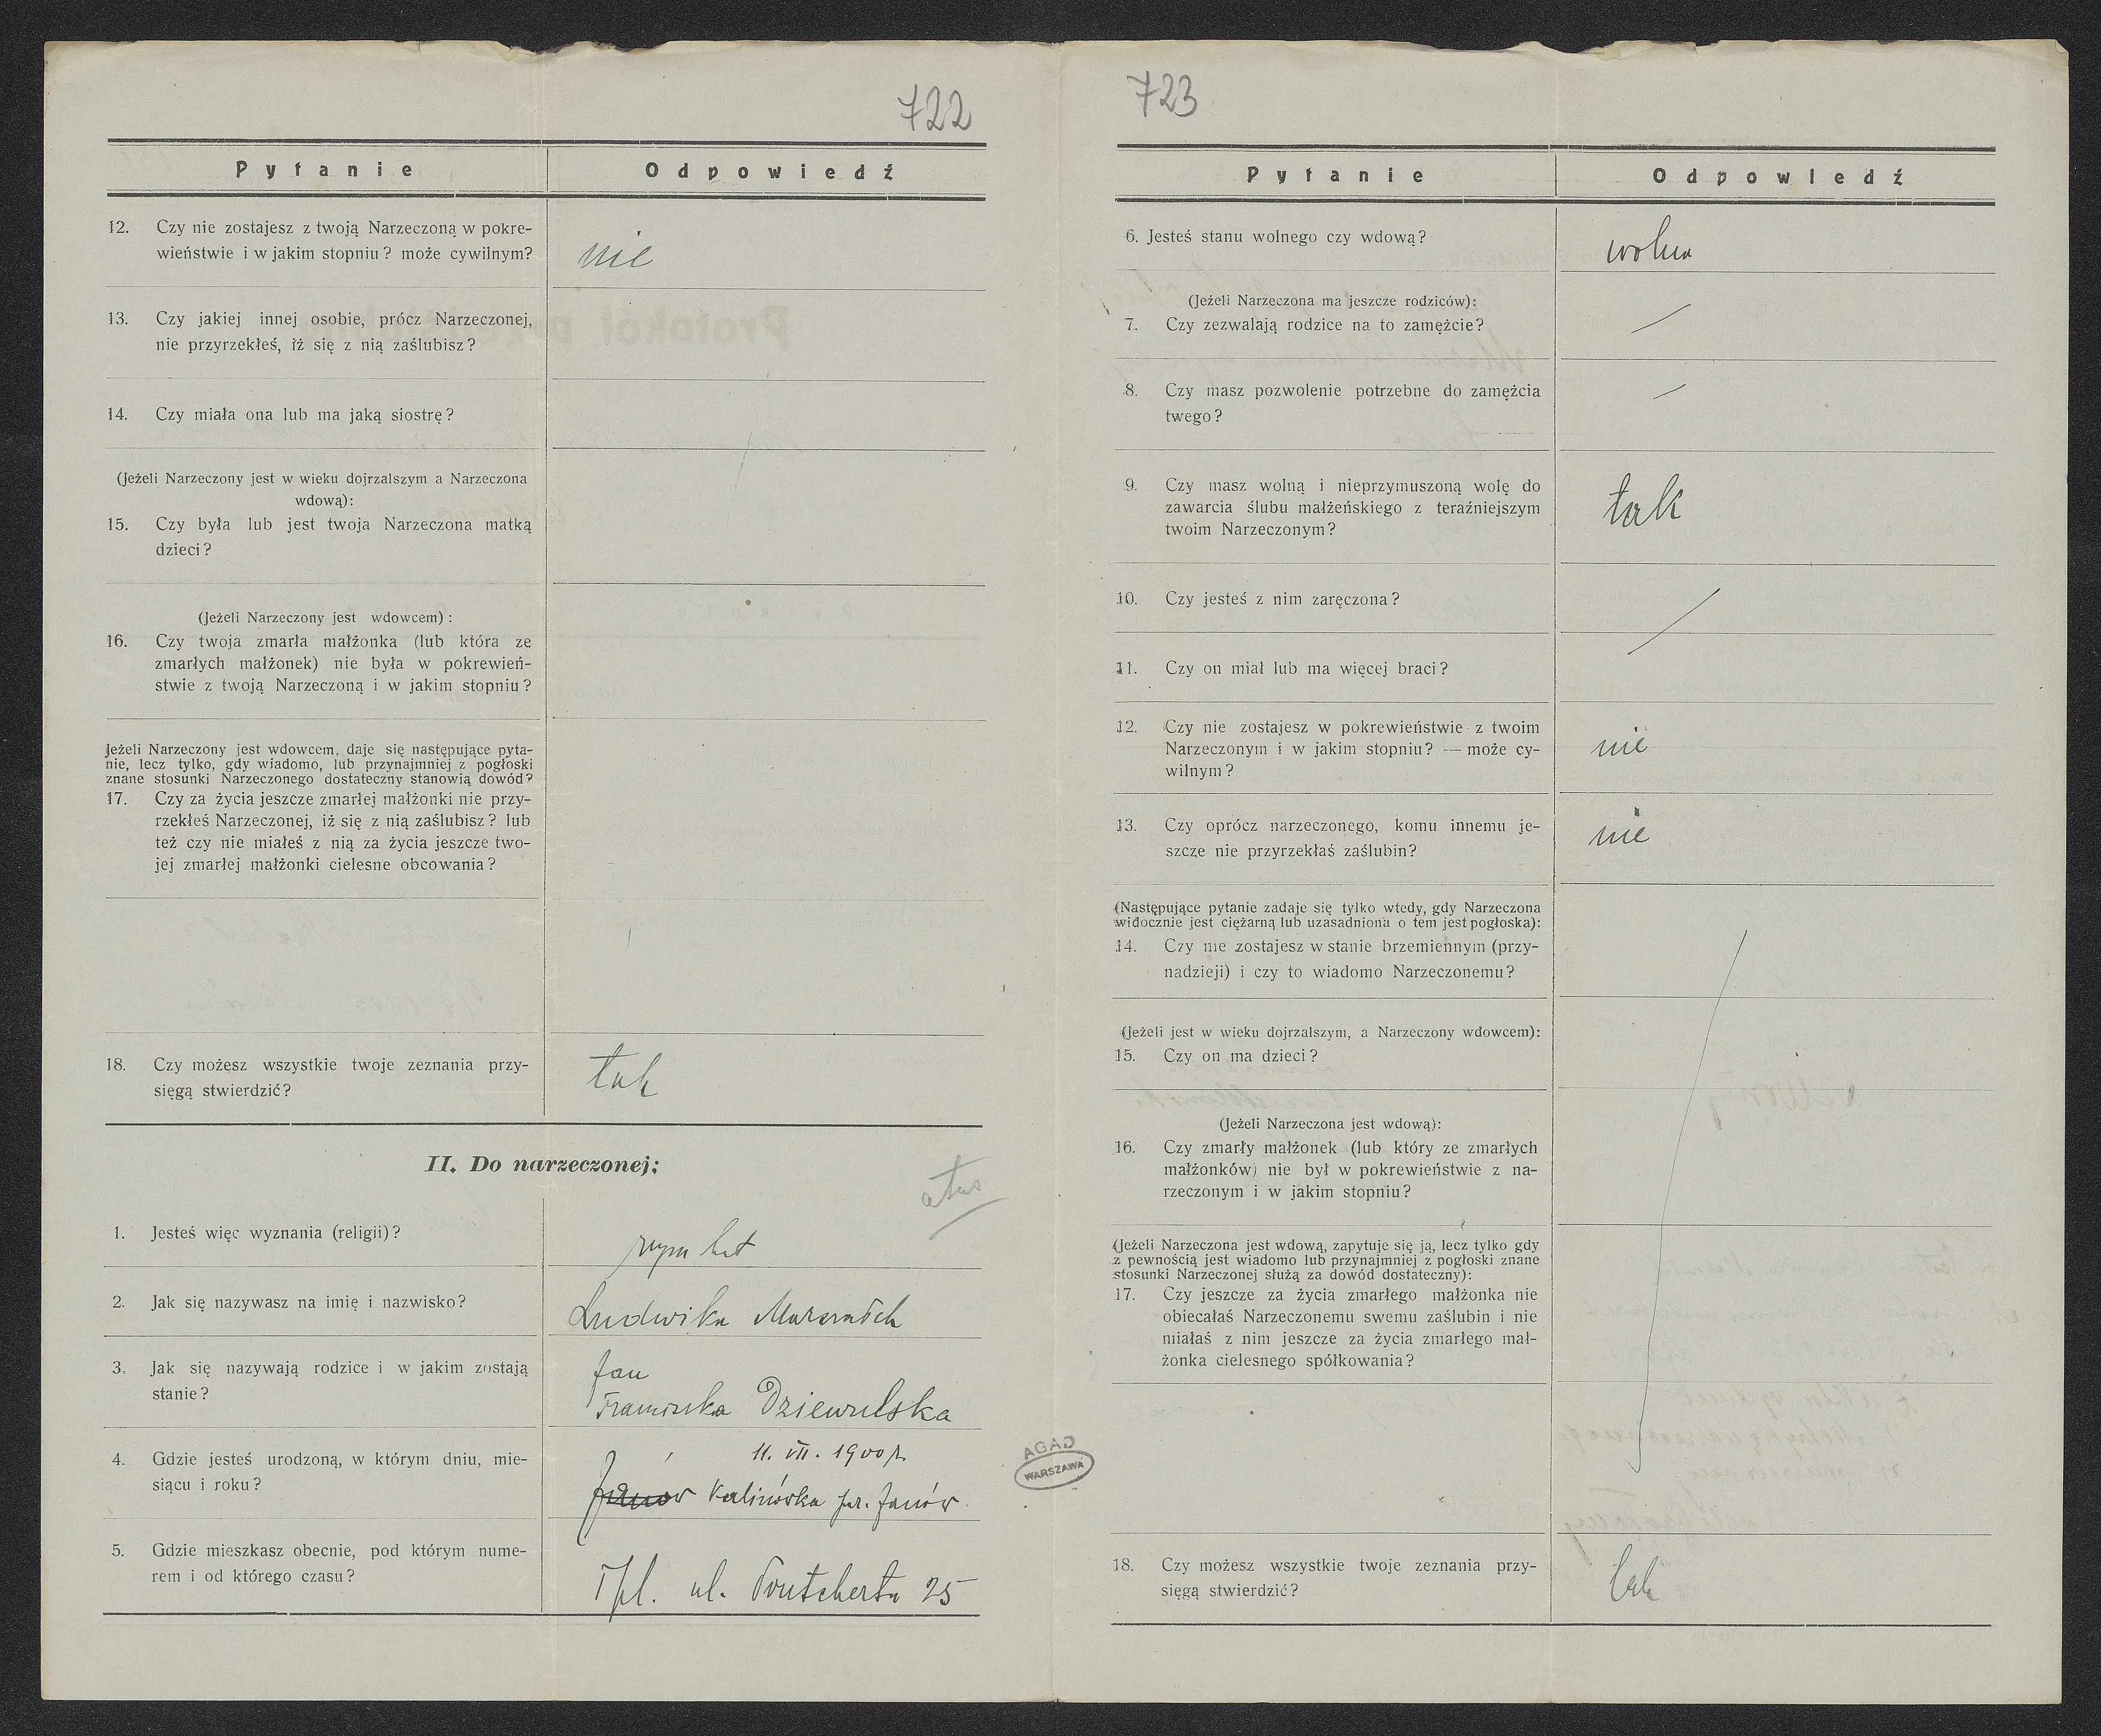 722
Pytanie Odpowiedź
12. Czy nie zostajesz z twoją Narzeczoną w pokre-
wieństwie i w jakim stopniu? może cywilnym?
nie
13. Czy jakiej innej osobie, prócz Narzeczonej,
nie przyrzekłeś, iż się z nią zaślubisz?
14. Czy miała ona lub ma jaką siostrę?
(Jeżeli Narzeczony jest w wieku dojrzalszym a Narzeczona
wdową):
15. Czy była lub jest twoja Narzeczona matką
dzieci?
(Jeżeli Narzeczony jest wdowcem):
16. Czy twoja zmarła małżonka (lub która ze
zmarłych małżonek) nie była w pokrewień-
stwie z twoją Narzeczoną i w jakim stopniu?
Jeżeli Narzeczony jest wdowcem, daje się następujące pyta-
nie, lecz tylko, gdy wiadomo, lub przynajmniej z pogłoski
znane stosunki Narzeczonego dostateczny stanowią dowód?
17. Czy za życia jeszcze zmarłej małżonki nie przy-
rzekłeś Narzeczonej, iż się z nią zaślubisz? lub
też czy nie miałeś z nią za życia jeszcze two-
jej zmarłej małżonki cielesne obcowania?
18. Czy możesz wszystkie twoje zeznania przy-
sięgą stwierdzić?
tak
II. Do narzeczonej:
1. Jesteś więc wyznania (religii)?
rzym kat
2. Jak się nazywasz na imię i nazwisko?
Ludwika
3. Jak się nazywają rodzice i w jakim zostają
stanie?
Jan
Franciszka Dziewulska
4. Gdzie jesteś urodzoną, w którym dniu, mie-
siącu i roku?
11. VII. 1900 r.
Janów Kalinówka pr. Janów
5. Gdzie mieszkasz obecnie, pod którym nume-
rem i od którego czasu?
Tpl. ul. 25
AGAD
WARSZAWA
723
Pytanie Odpowiedź
6. Jesteś stanu wolnego czy wdową?
wolna
(Jeżeli Narzeczona ma jeszcze rodziców):
7. Czy zezwalają rodzice na to zamężcie?
8. Czy masz pozwolenie potrzebne do zamężcia
twego?
9. Czy masz wolną i nieprzymuszoną wolę do
zawarcia ślubu małżeńskiego z teraźniejszym
twoim Narzeczonym?
tak
10. Czy jesteś z nim zaręczona?
11. Czy on miał lub ma więcej braci?
12. Czy nie zostajesz w pokrewieństwie z twoim
Narzeczonym i w jakim stopniu? — może cy-
wilnym?
nie
13. Czy oprócz narzeczonego, komu innemu je-
szcze nie przyrzekłaś zaślubin?
nie
(Następujące pytanie zadaje się tylko wtedy, gdy Narzeczona
widocznie jest ciężarną lub uzasadniona o tem jest pogłoska):
14. Czy nie zostajesz w stanie brzemiennym (przy-
nadzieji) i czy to wiadomo Narzeczonemu?
(Jeżeli jest w wieku dojrzalszym, a Narzeczony wdowcem):
15. Czy on ma dzieci?
(Jeżeli Narzeczona jest wdową):
16. Czy zmarły małżonek (lub który ze zmarłych
małżonków) nie był w pokrewieństwie z na-
rzeczonym i w jakim stopniu?
(Jeżeli Narzeczona jest wdową, zapytuje się ją, lecz tylko gdy
z pewnością jest wiadomo lub przynajmniej z pogłoski znane
stosunki Narzeczonej służą za dowód dostateczny):
17. Czy jeszcze za życia zmarłego małżonka nie
obiecałaś Narzeczonemu swemu zaślubin i nie
miałaś z nim jeszcze za życia zmarłego mał-
żonka cielesnego spółkowania?
18. Czy możesz wszystkie twoje zeznania przy-
sięgą stwierdzić?
tak